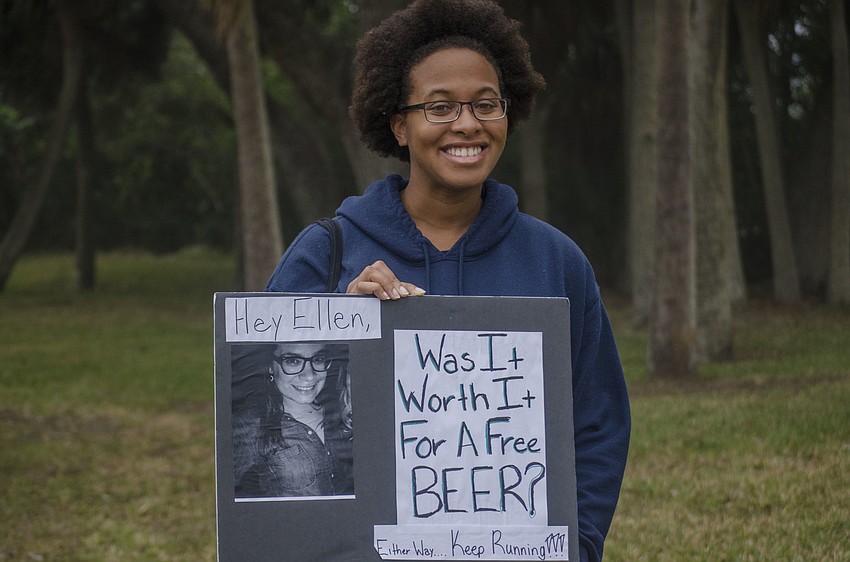 Hey Ellen,
Was It
Worth It
For A Free
BEER?
Either Way.... Keep Running!!!